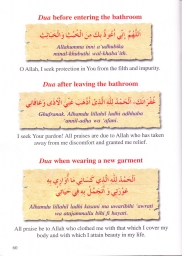 Dua before entering the bathroom
اللَّهُمَّ إِنِّي أَعُوذُ بِكَ مِنَ الْخُبُثِ وَالْخَبَائِثِ
Allahumma inni a'udhubika
minal-khubuthi wal-khaba'ith.
O Allah, I seek protection in You from the filth and impurity.
Dua after leaving the bathroom
غُفْرَانَكَ، الْحَمْدُ لِلَّهِ الَّذِي أَذْهَبَ عَنِّي الْأَذَى وَعَافَانِي
Ghufranaka, Alhamdu lillahil ladhi adhhaba
'annil-adha wa 'afani.
I seek Your pardon! All praises are due to Allah who has taken
away from me discomfort and granted me relief.
Dua when wearing a new garment
الْحَمْدُ لِلَّهِ الَّذِي كَسَانِي مَا أُوَارِي بِهِ
عَوْرَتِي وَ أَتَجَمَّلُ بِهِ فِي حَيَاتِي
Alhamdu lillahil ladhi kasani ma uwaribihi 'awrati
wa atajammalu bihi fi hayati.
All praise be to Allah who clothed me with that which I cover my
body and with which I attain beauty in my life.
60